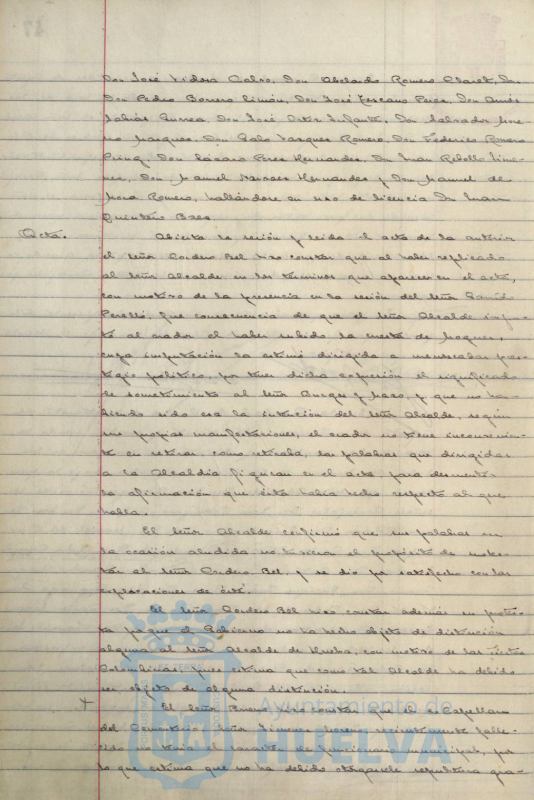 Don José Vidosa Calvo, Don Abelardo Romero Claret, Don
Don Pedro Borrero Limón, Don José Toscano Perez, Don Andrés
Tobías Gurrea, Don José Oster Infante, Don Salvador More-
no Marquez, Don Galo Vazquez Romero, Don Federico Romero
Don Lázaro Perez Hernandez, Don Juan Rebollo Jime-
nez, Don Manuel Narvaez Hernandez y Don Manuel de
Mora Romero, hallándose en uso de licencia Don Juan
Quintero Baez.
Acta. Abierta la sesión y leida el acta de la anterior
el Señor Cordero Bel hizo constar que al haber replicado
al Señor Alcalde en los términos que aparecen en el acta,
con motivo de la presencia en la sesión del Señor
fué consecuencia de que el Señor Alcalde impu-
tó al orador el haber subido la cuesta de Moguer,
cuya imputación la estimó dirigida a menoscabar pres-
tigio político, por tener dicha expresión el significado
de sometimiento al Señor Burgos y Mazo, y que no ha-
biendo sido esa la intención del Señor Alcalde, según
sus propias manifestaciones, el orador no tiene inconvenien-
te en retirar, como retiraba, las palabras que dirigidas
a la Alcaldía figuran en el acta, para desmentir
la afirmación que ésta había hecho respecto al que
habla.
El Señor Alcalde confirmó que sus palabras en
la ocasión aludida no tuvieron el propósito de moles-
tar al Señor Cordero Bel, y se dio por satisfecho con las
explicaciones de éste.
El Señor Cordero Bel hizo constar además su protes-
ta porque el Gobierno no ha hecho objeto de distinción
alguna al Señor Alcalde de Huelva, con motivo de las fiestas
Colombinas, pues estima que como tal Alcalde ha debido
ser objeto de alguna distinción.
+ El Señor hizo constar que el Capellán
del Cementerio Señor Jimenez recientemente falle-
cido no tenía el carácter de funcionario municipal, por
lo que estima que no ha debido otorgarsele sepultura gra-
Ayuntamiento de
HUELVA